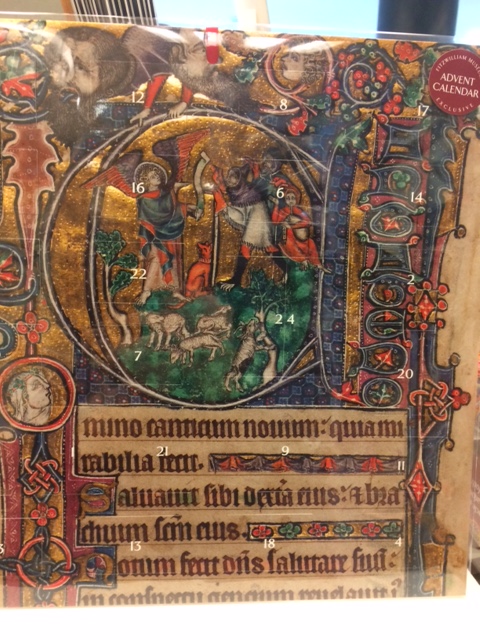 FITZWILLIAM MUSEUM
ADVENT
CALENDAR
EXCLUSIVE
12
8
17
16
6
14
22
2
24
7
20
mino canticum nouum: quia mi
21
9
rabilia fecit.
11
Saluauit sibi dext'a eius: & bra
chium scm eius.
13
18
4
Notum fecit dns salutare suu:
in conspectu gencium reuelauit